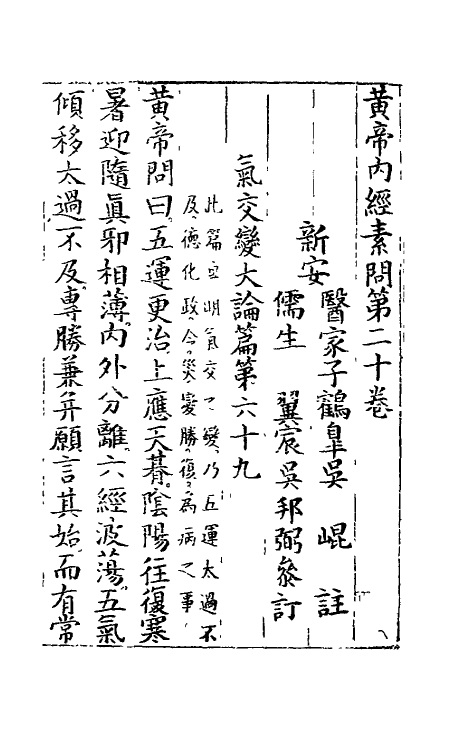 黃帝內經素問第二十卷
新安
醫家子鶴臯吳 崐 註
儒生 翼宸吳邦弼叅訂
氣交變大論篇第六十九
此篇亟明氣交之變乃五運太過不
及德化政令災變勝復為病之事
黃帝問曰五運更治上應天朞陰陽往復寒
暑迎隨眞邪相薄內外分離六經波蕩五氣
傾移太過不及專勝兼并願言其始而有常